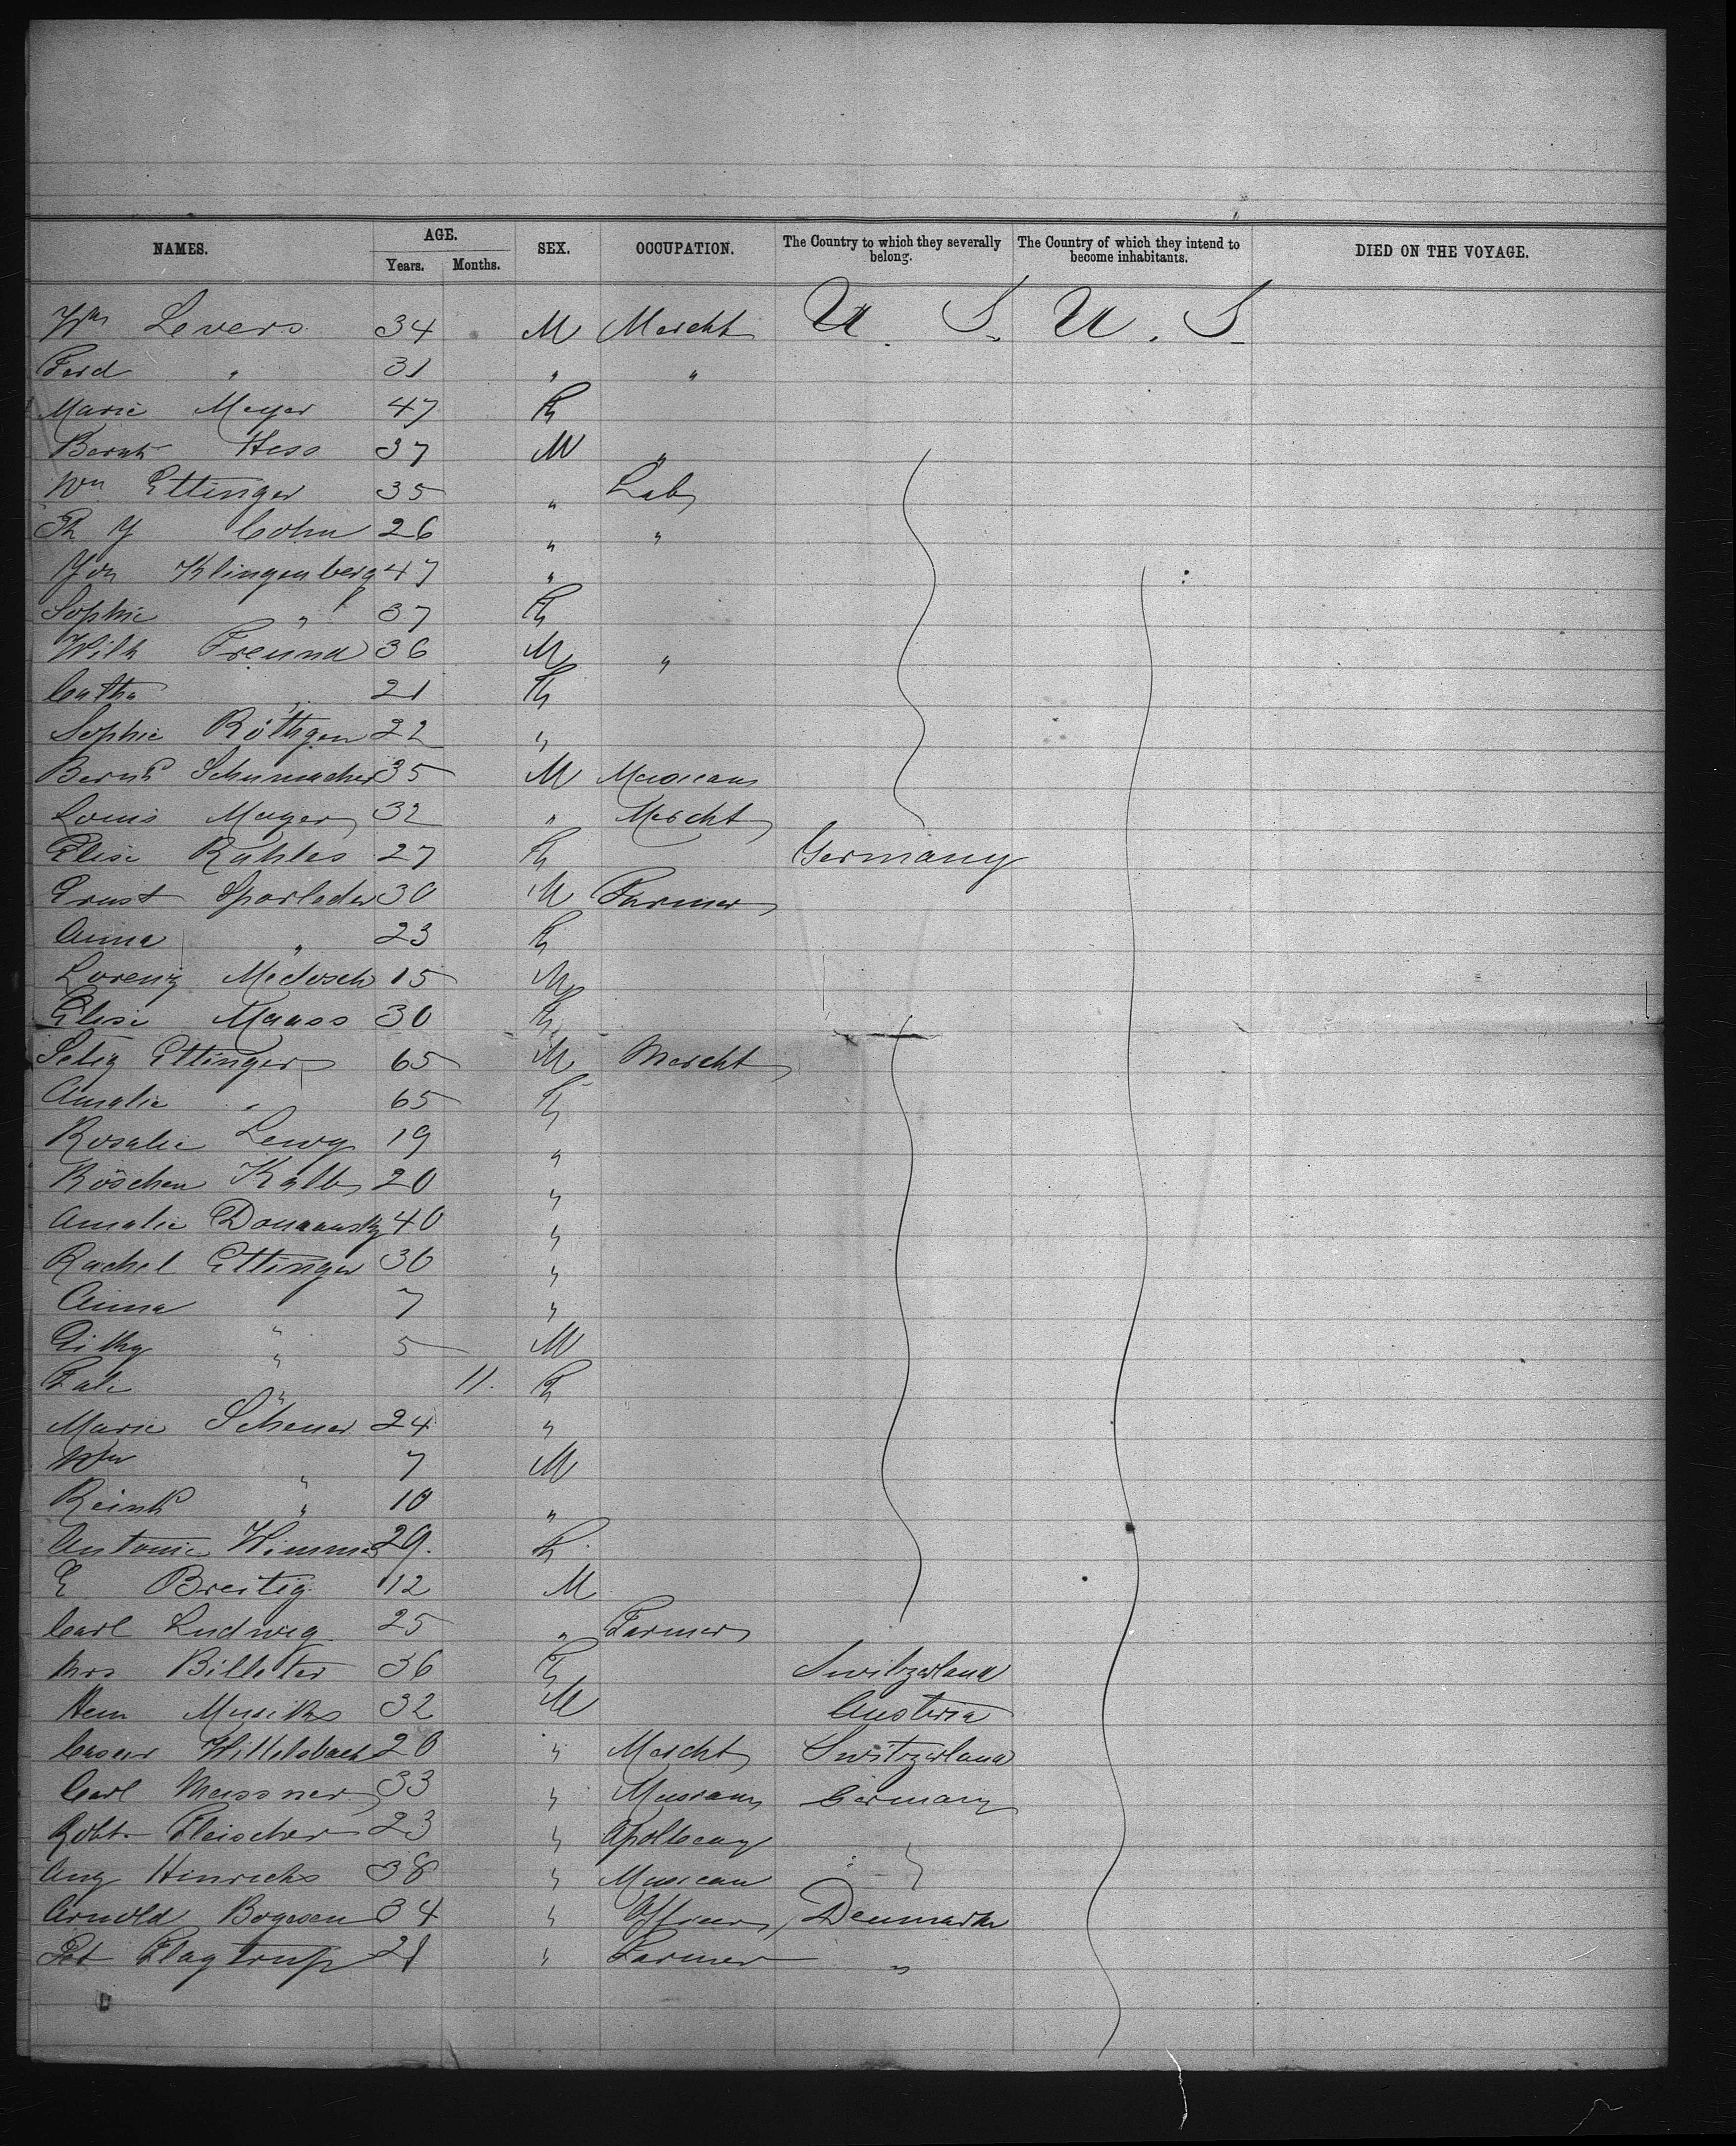 NAMES. AGE. SEX. OCCUPATION. The Country to which they severally belong. The Country of which they intend to become inhabitants. DIED ON THE VOYAGE.
Years. Months.
Wm Levers 34 M Mercht U. S. U. S.
Ferd " 31 " "
Marie Meyer 47 F
Bernh Hess 37 M "
Wm Ettinger 35 " Lab
Cohn 26 " "
Klingenberg 47 "
Sophie " 37 F
Wilh Freund 36 M "
Catha " 21 F
Sophie Röthgen 22 "
Bernh Schumacher 35 M
Louis Mayer 32 " Mercht
Elise Kahles 27 F Germany
Ernst Sporleder 30 M Farmer
Anna " 23 F
Lorenz Medosch 15 M
Elise Maass 30 F
Ettinger 65 M Mercht
Amalie " 65 F
Rosalie Lewy 19 "
Röschen Kalb 20 "
Amalie 40 "
Rachel Ettinger 30 "
Anna " 7 "
" 5 M
" 11. F
Marie Scheuer 24 "
Wm " 7 M
Reinh " 10 "
Antonie 29. F
E Breitig 12 M
Carl Ludwig 25 " Farmer
Mrs Billeter 36 F Switzerland
32 M Austria
Wittelsbach 20 " Mercht Switzerland
Carl Meissner 33 " Germany
Robt. Fleischer 23 " "
Aug Hinrichs 38 " Musican "
Arnold Bogesen 34 " Officer Denmark
Pet Flagtrup 21 " Farmer "